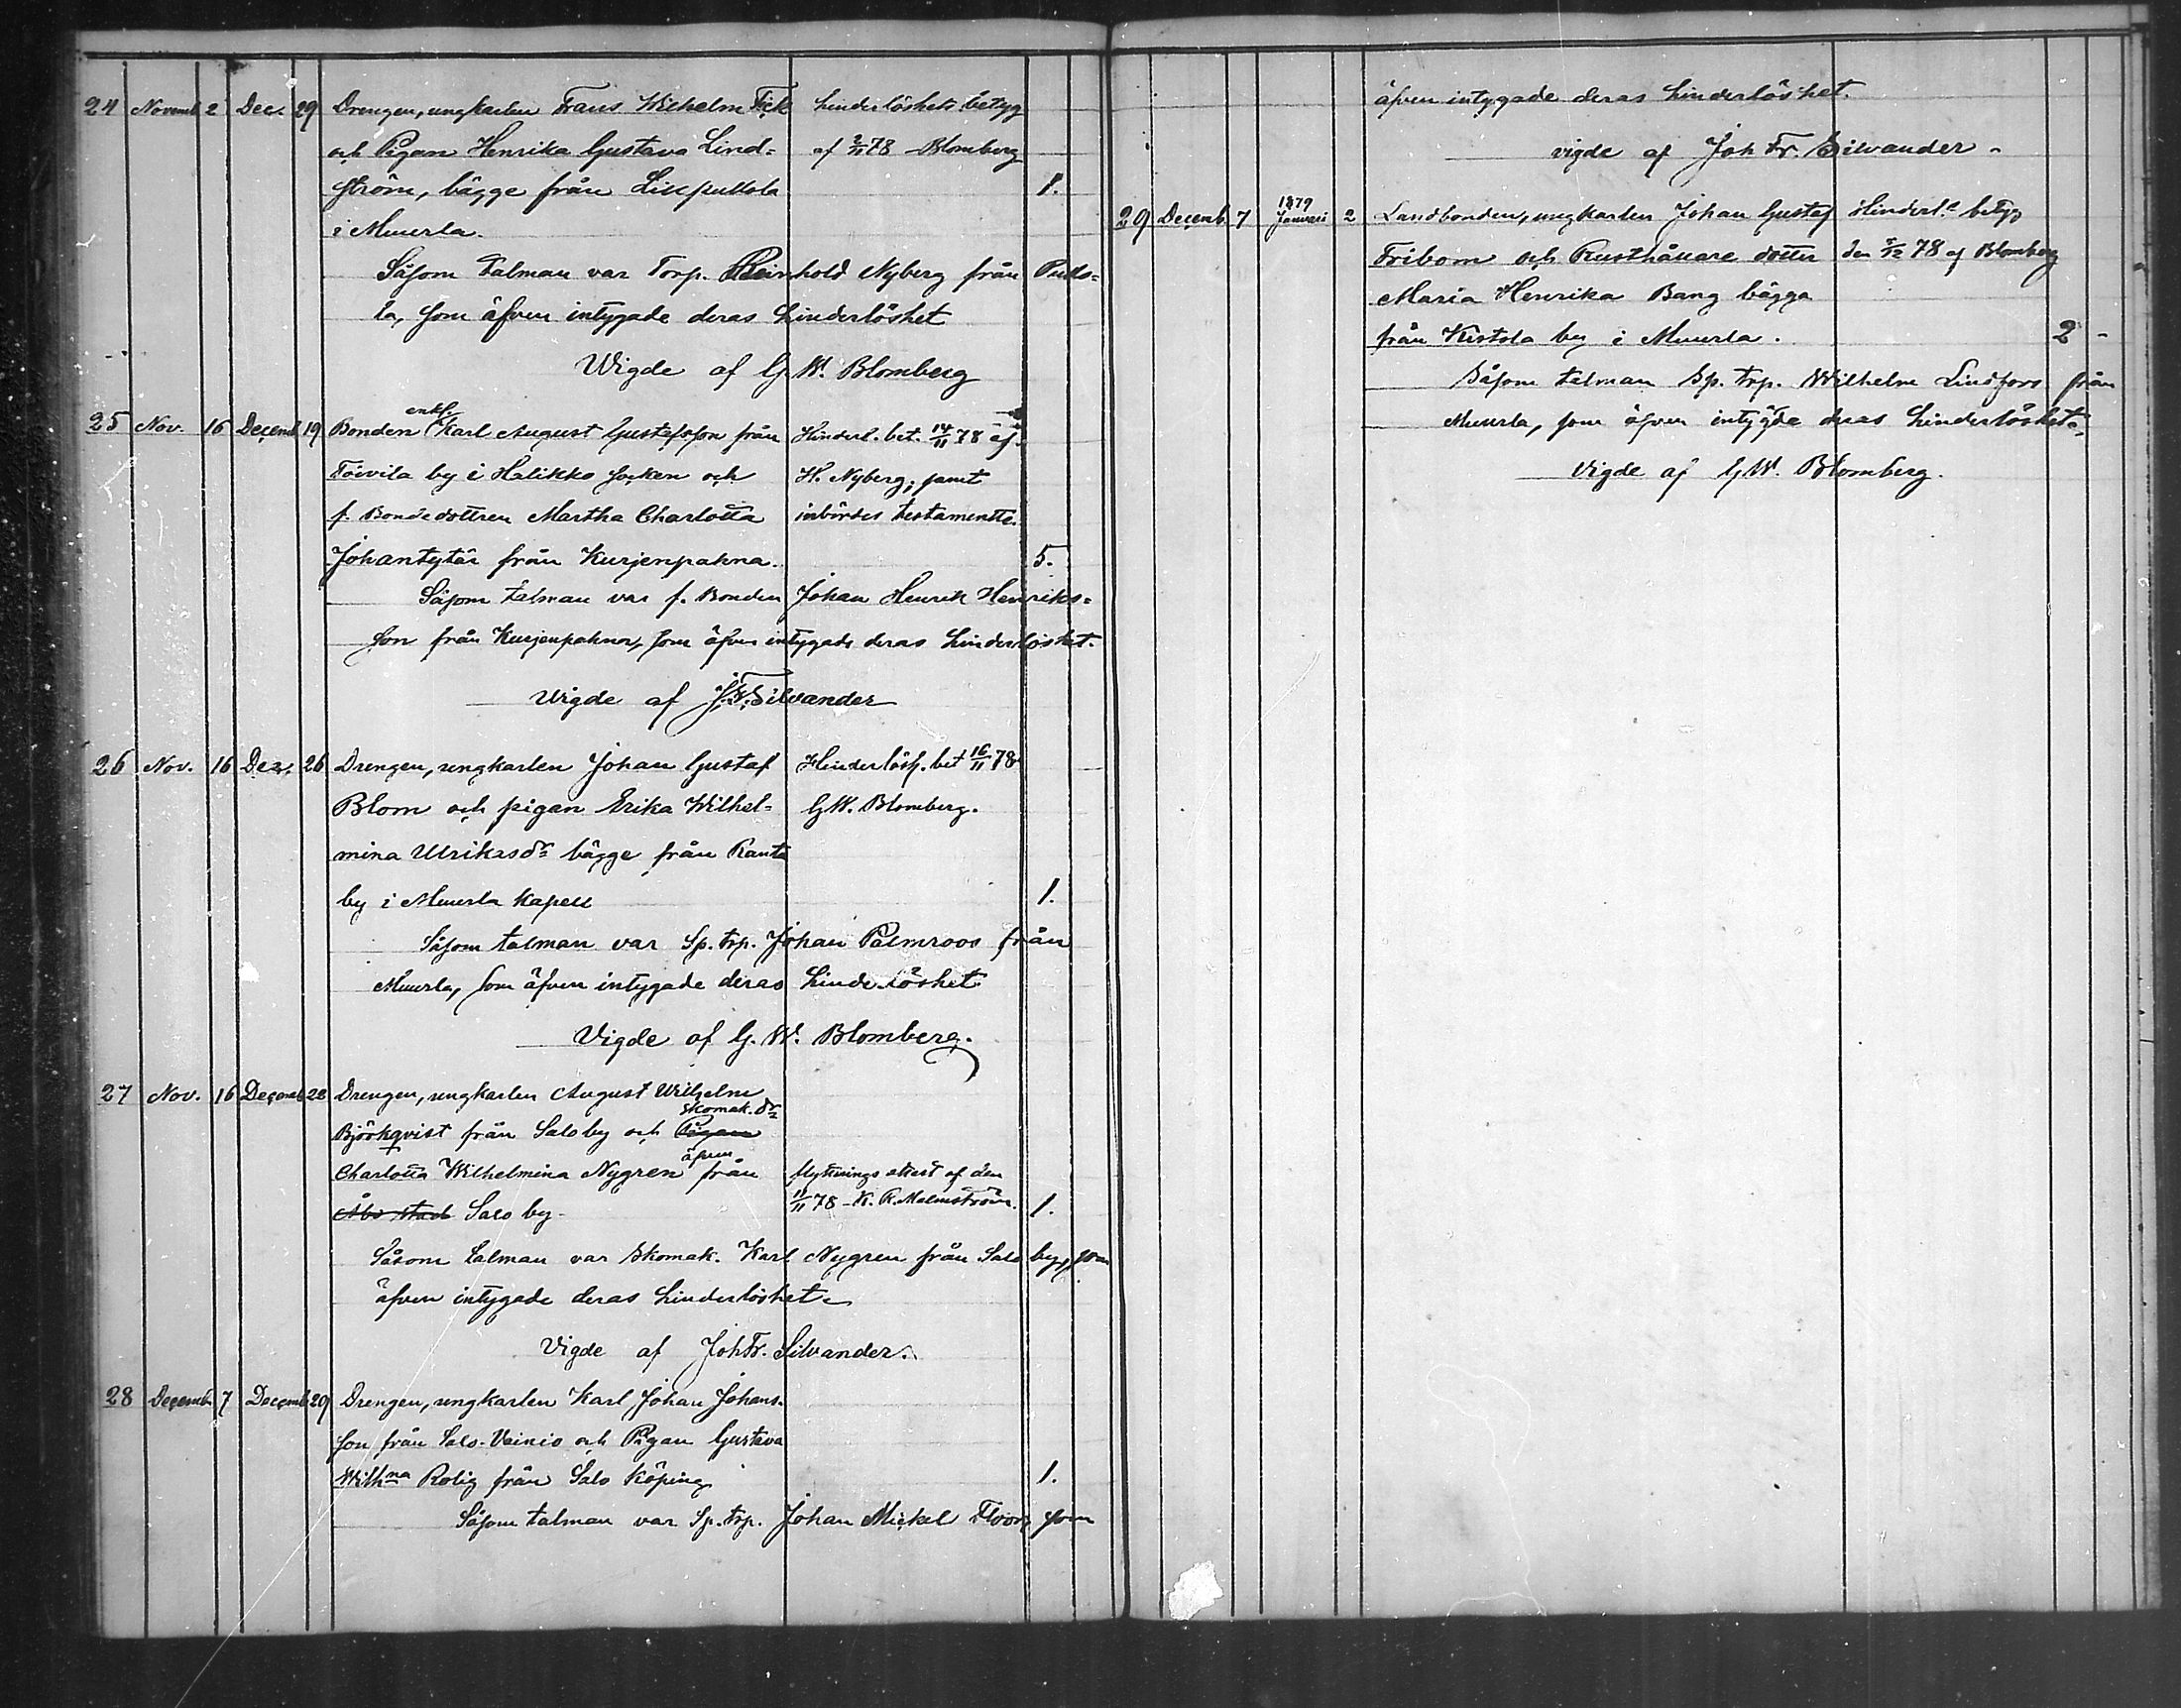 24 Novemb 2 Dec. 29 Drengen, ungkarlen Frans Wilhelm Fick hinderlöshets betyg
och Pigan Henrika Gustava Lind= af 2/11 78 Blomberg
ström, bägge från Lispullola 1.
i Muurla.
Såsom talman var Torp. Reinhold Nyberg från Pulls=
la, som äfven intygade deras hinderlöshet
Wigde af G. W. Blomberg
25 Nov. 16 Decemb 19 Bonden enkl. Karl August Gustafsson från Hinderl. bet. 14/11 78 af
Toivila by i Halikko socken och H. Nyberg; samt
f. Bondedottren Martha Charlotta inbördes testamente.
Johantytär från Kurjenpahna. 5.
Såsom talman var f. Bonden Johan Henrik Henriks=
son från Kurjenpahna, som äfven intygade deras hinderlöshet.
Wigde af J. F. Silvander
26 Nov. 16 Dec. 26 Drengen, ungkarlen Johan Gustaf Hinderlösh. bet 16/11 78
Blom och pigan Erika Wilhel= G W. Blomberg.
mina Ulrikasdr bägge från Ranta
by i Muurla kapell 1.
Såsom talman var Sp. trp. Johan Palmroos från
Muurla, som äfven intygade deras hinderlöshet
Vigde af G. W. Blomberg.
27 Nov. 16 Decemb 22 Drengen, ungkarlen August Wilhelm
Björkqvist från Salo by och Pigan skomak. dr
Charlotta Wilhelmina Nygren äfven från flyttnings attest af den
Åbo stad Salo by. 11/11 78 - K. R. Malmström. 1.
Såsom talman var Skomak. Karl Nygren från Salo by, som
äfven intygade deras hinderlöshet.
Vigde af Joh Fr. Silvander.
28 Decemb. 7 Decemb 29 Drengen, ungkarlen Karl Johan Johans-
son från Salo-Vainio och Pigan Gustava
Wilhna Rolig från Salo Köping 1.
Såsom talman var Sp. trp. Johan Mickel Floor, som
äfven intygade deras hinderlöshet.
vigde af Joh Fr. Silvander -
29 Decemb. 7 1879 Januari 2 Landbonden, ungkarlen Johan Gustaf Hinderl. betyg
Fribom och Rusthållare dotter den 5/12 78 af Blomberg
Maria Henrika Bang bägga
från Kistola by i Muurla. 2 -
Såsom talman Sp. trp. Wilhelm Lindfors från
Muurla, som äfven intygde deras hinderlöshet.
Vigde af G W. Blomberg.